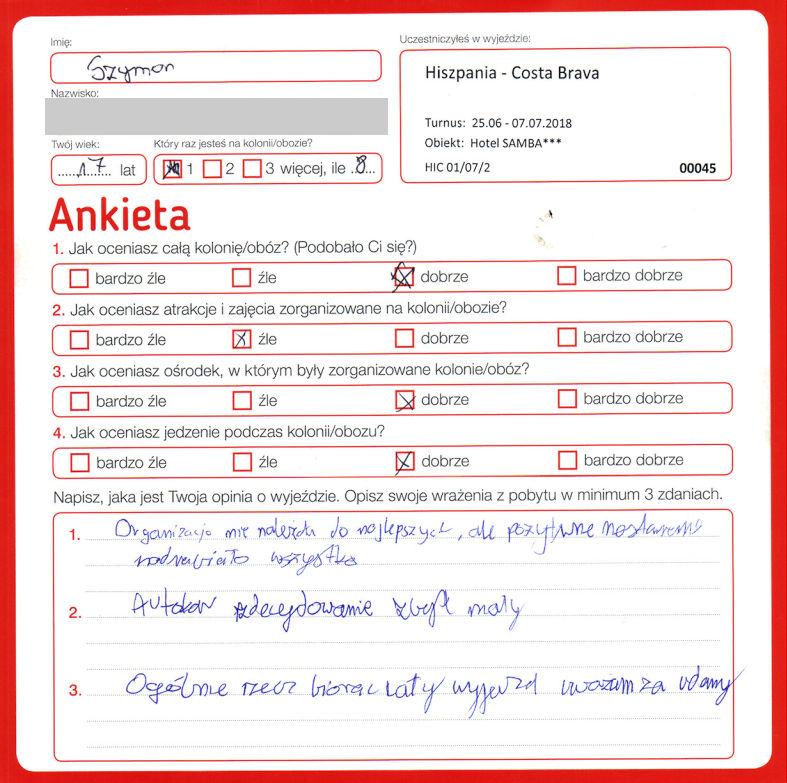 Imię:
Szymon
Nazwisko:
Twój wiek:
17 lat
Który raz jesteś na kolonii/obozie?
1 2 3 więcej, ile 8
Uczestniczyłeś w wyjeździe:
Hiszpania - Costa Brava
Turnus: 25.06 - 07.07.2018
Obiekt: Hotel SAMBA***
HIC 01/07/2 00045
Ankieta
1. Jak oceniasz całą kolonię/obóz? (Podobało Ci się?)
bardzo źle źle dobrze bardzo dobrze
2. Jak oceniasz atrakcje i zajęcia zorganizowane na kolonii/obozie?
bardzo źle źle dobrze bardzo dobrze
3. Jak oceniasz ośrodek, w którym były zorganizowane kolonie/obóz?
bardzo źle źle dobrze bardzo dobrze
4. Jak oceniasz jedzenie podczas kolonii/obozu?
bardzo źle źle dobrze bardzo dobrze
Napisz, jaka jest Twoja opinia o wyjeździe. Opisz swoje wrażenia z pobytu w minimum 3 zdaniach.
1. Organizacja nie należała do najlepszych, ale pozytywne nastawienie
nadrabiało wszystko
2. Autokar zdecydowanie zbyt mały
3. Ogólnie rzecz biorąc cały wyjazd uważam za udany